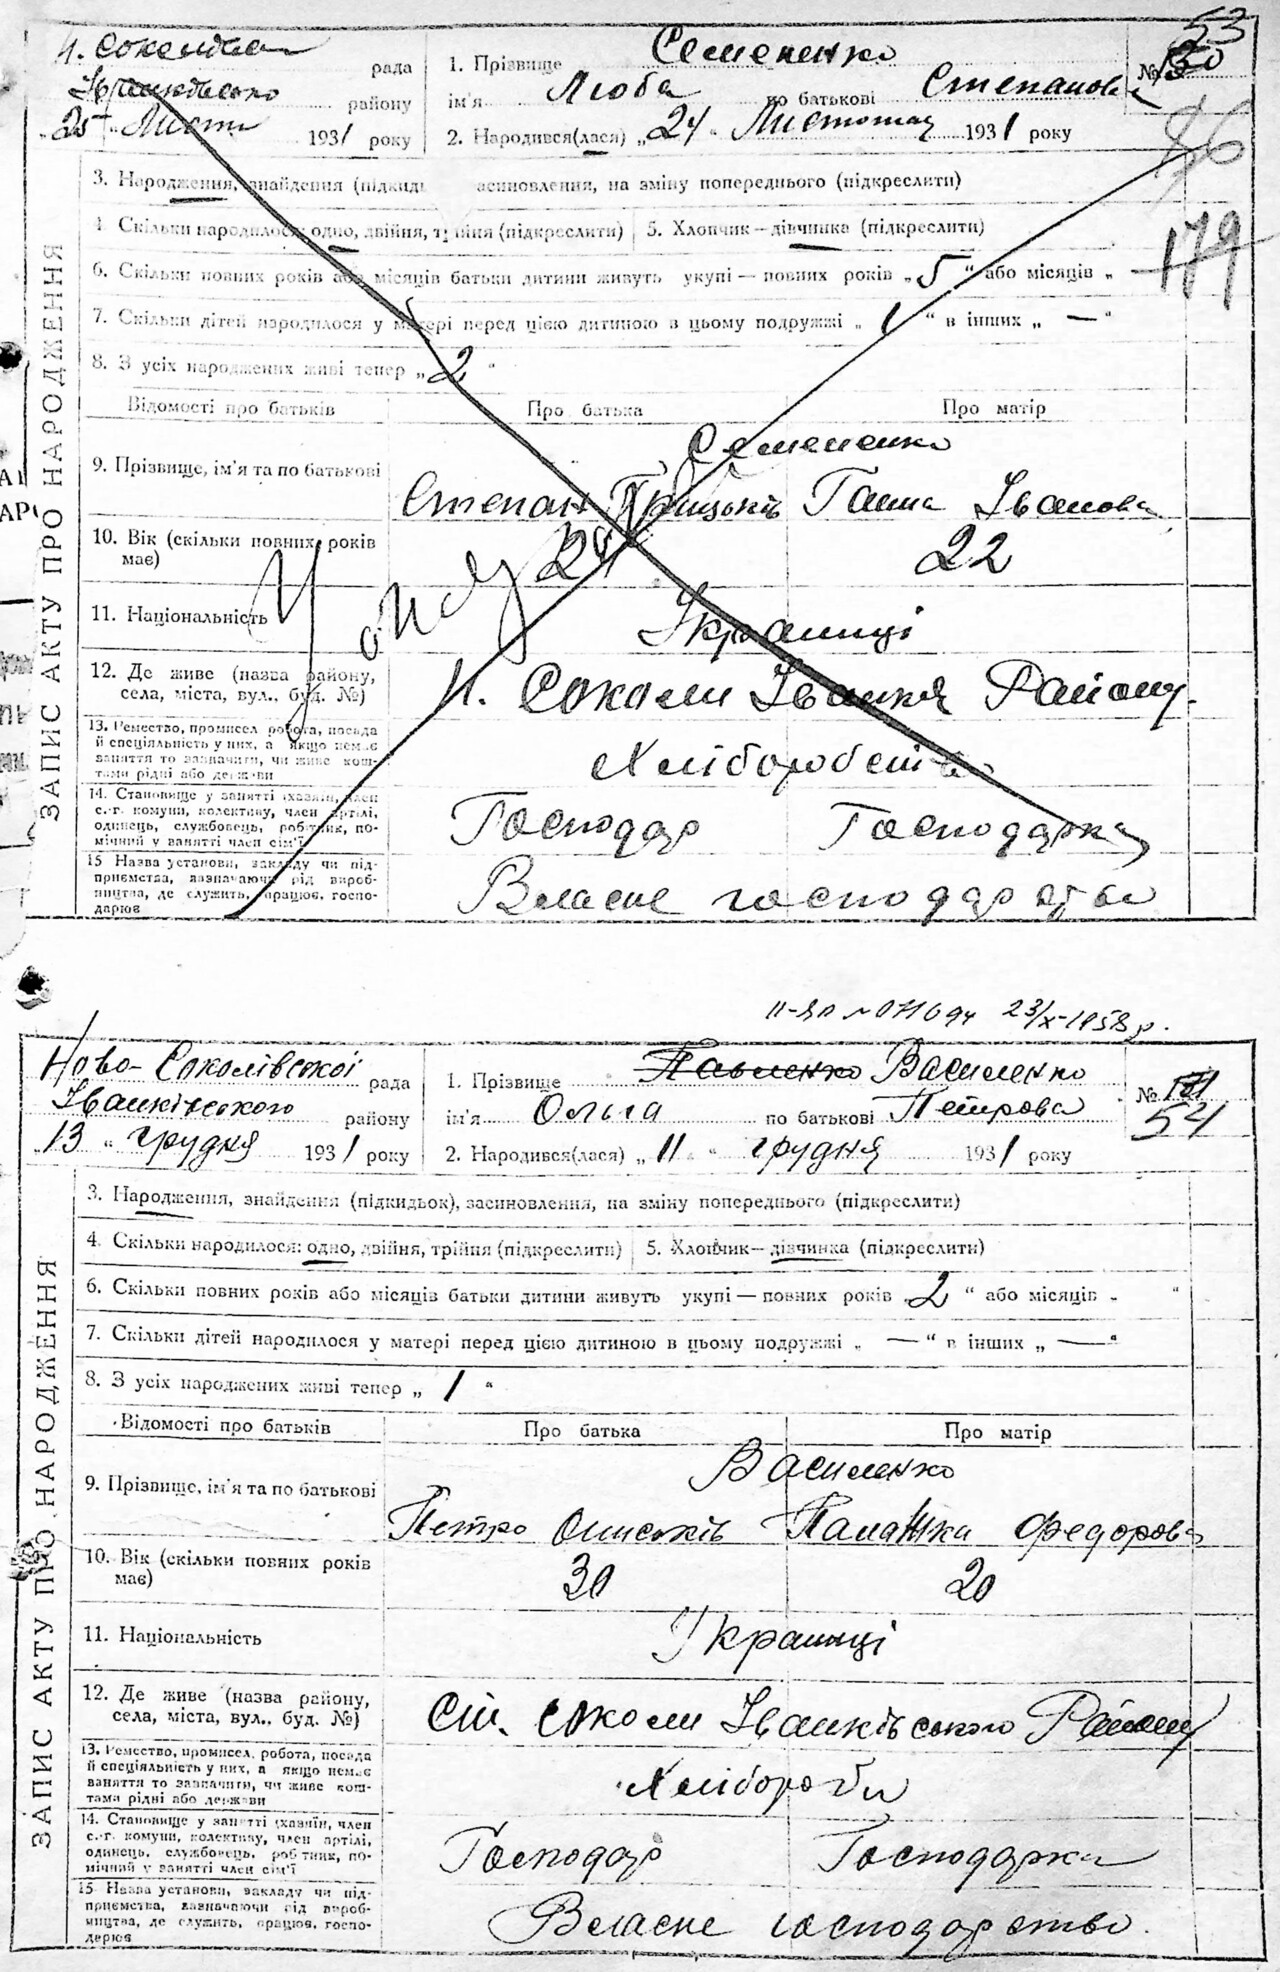 53
Н. Соколівсь рада
Іванківсько району
„25“ Листп 1931 року
1. Прізвище Семененко
№ 120
ім'я Люба по батькові Степанова
2. Народився(лася) „24“ Листопад 1931 року
179
ЗАПИС АКТУ ПРО НАРОДЖЕННЯ
3. Народження, знайдення (підкид засиновлення, на зміну попереднього (підкреслити)
4. Скільки народилося: одно, двійня, трійня (підкреслити) 5. Хлопчик—дівчинка (підкреслити)
6. Скільки повних років або місяців батьки дитини живуть укупі — повних років „5“ або місяців „
7. Скільки дітей народилося у матері перед цією дитиною в цьому подружжі „1“ в інших „—“
8. З усіх народжених живі тепер „2“
Відомості про батьків Про батька Про матір
Семененко
9. Прізвище, ім'я та по батькові
Степан Грицьків Ганна Іванова
10. Вік (скільки повних років має) 24 22
11. Національність Українці
12. Де живе (назва району,
села, міста, вул., буд. №) Н. Соколи Іванків Району
13. Ремество, промисел робота, посада
й спеціяльність у них, а якщо немає
заняття то зазначити, чи живе кош-
тами рідні або держави
Хліборобство
14. Становище у занятті (хазяїн, член
с.-г. комуни, колективу, член артілі,
одинець, службовець, робітник, по-
мічний у занятті член сім'ї
Господар Господарка
15 Назва установи, закладу чи під-
приємства, зазначаючи рід вироб-
ництва, де служить, працює, госпо-
дарює
Власне господарство
23/X-1958 р.
Ново-Соколівської рада
Іванківського району
„13“ грудня 1931 року
1. Прізвище Павленко Василенко
№ 121
54
ім'я Ольга по батькові Петрова
2. Народився(лася) „11“ грудня 1931 року
ЗАПИС АКТУ ПРО НАРОДЖЕННЯ
3. Народження, знайдення (підкидьок), засиновлення, на зміну попереднього (підкреслити)
4. Скільки народилося: одно, двійня, трійня (підкреслити) 5. Хлопчик—дівчинка (підкреслити)
6. Скільки повних років або місяців батьки дитини живуть укупі — повних років „2“ або місяців „ “
7. Скільки дітей народилося у матері перед цією дитиною в цьому подружжі „—“ в інших „—“
8. З усіх народжених живі тепер „1“
Відомості про батьків Про батька Про матір
Василенко
9. Прізвище, ім'я та по батькові
Петро Ониськів Палажка Федорова
10. Вік (скільки повних років має) 30 20
11. Національність Українці
12. Де живе (назва району,
села, міста, вул., буд. №) Сіл. Соколи Іванківського Району
13. Ремество, промисел, робота, посада
й спеціяльність у них, а якщо немає
заняття то зазначити, чи живе кош-
тами рідні або держави
Хлібороби
14. Становище у занятті (хазяїн, член
с.-г. комуни, колективу, член артілі,
одинець, службовець, робітник, по-
мічний у занятті член сім'ї
Господар Господарка
15 Назва установи, закладу чи під-
приємства, зазначаючи рід вироб-
ництва, де служить, працює, госпо-
дарює
Власне господарство.